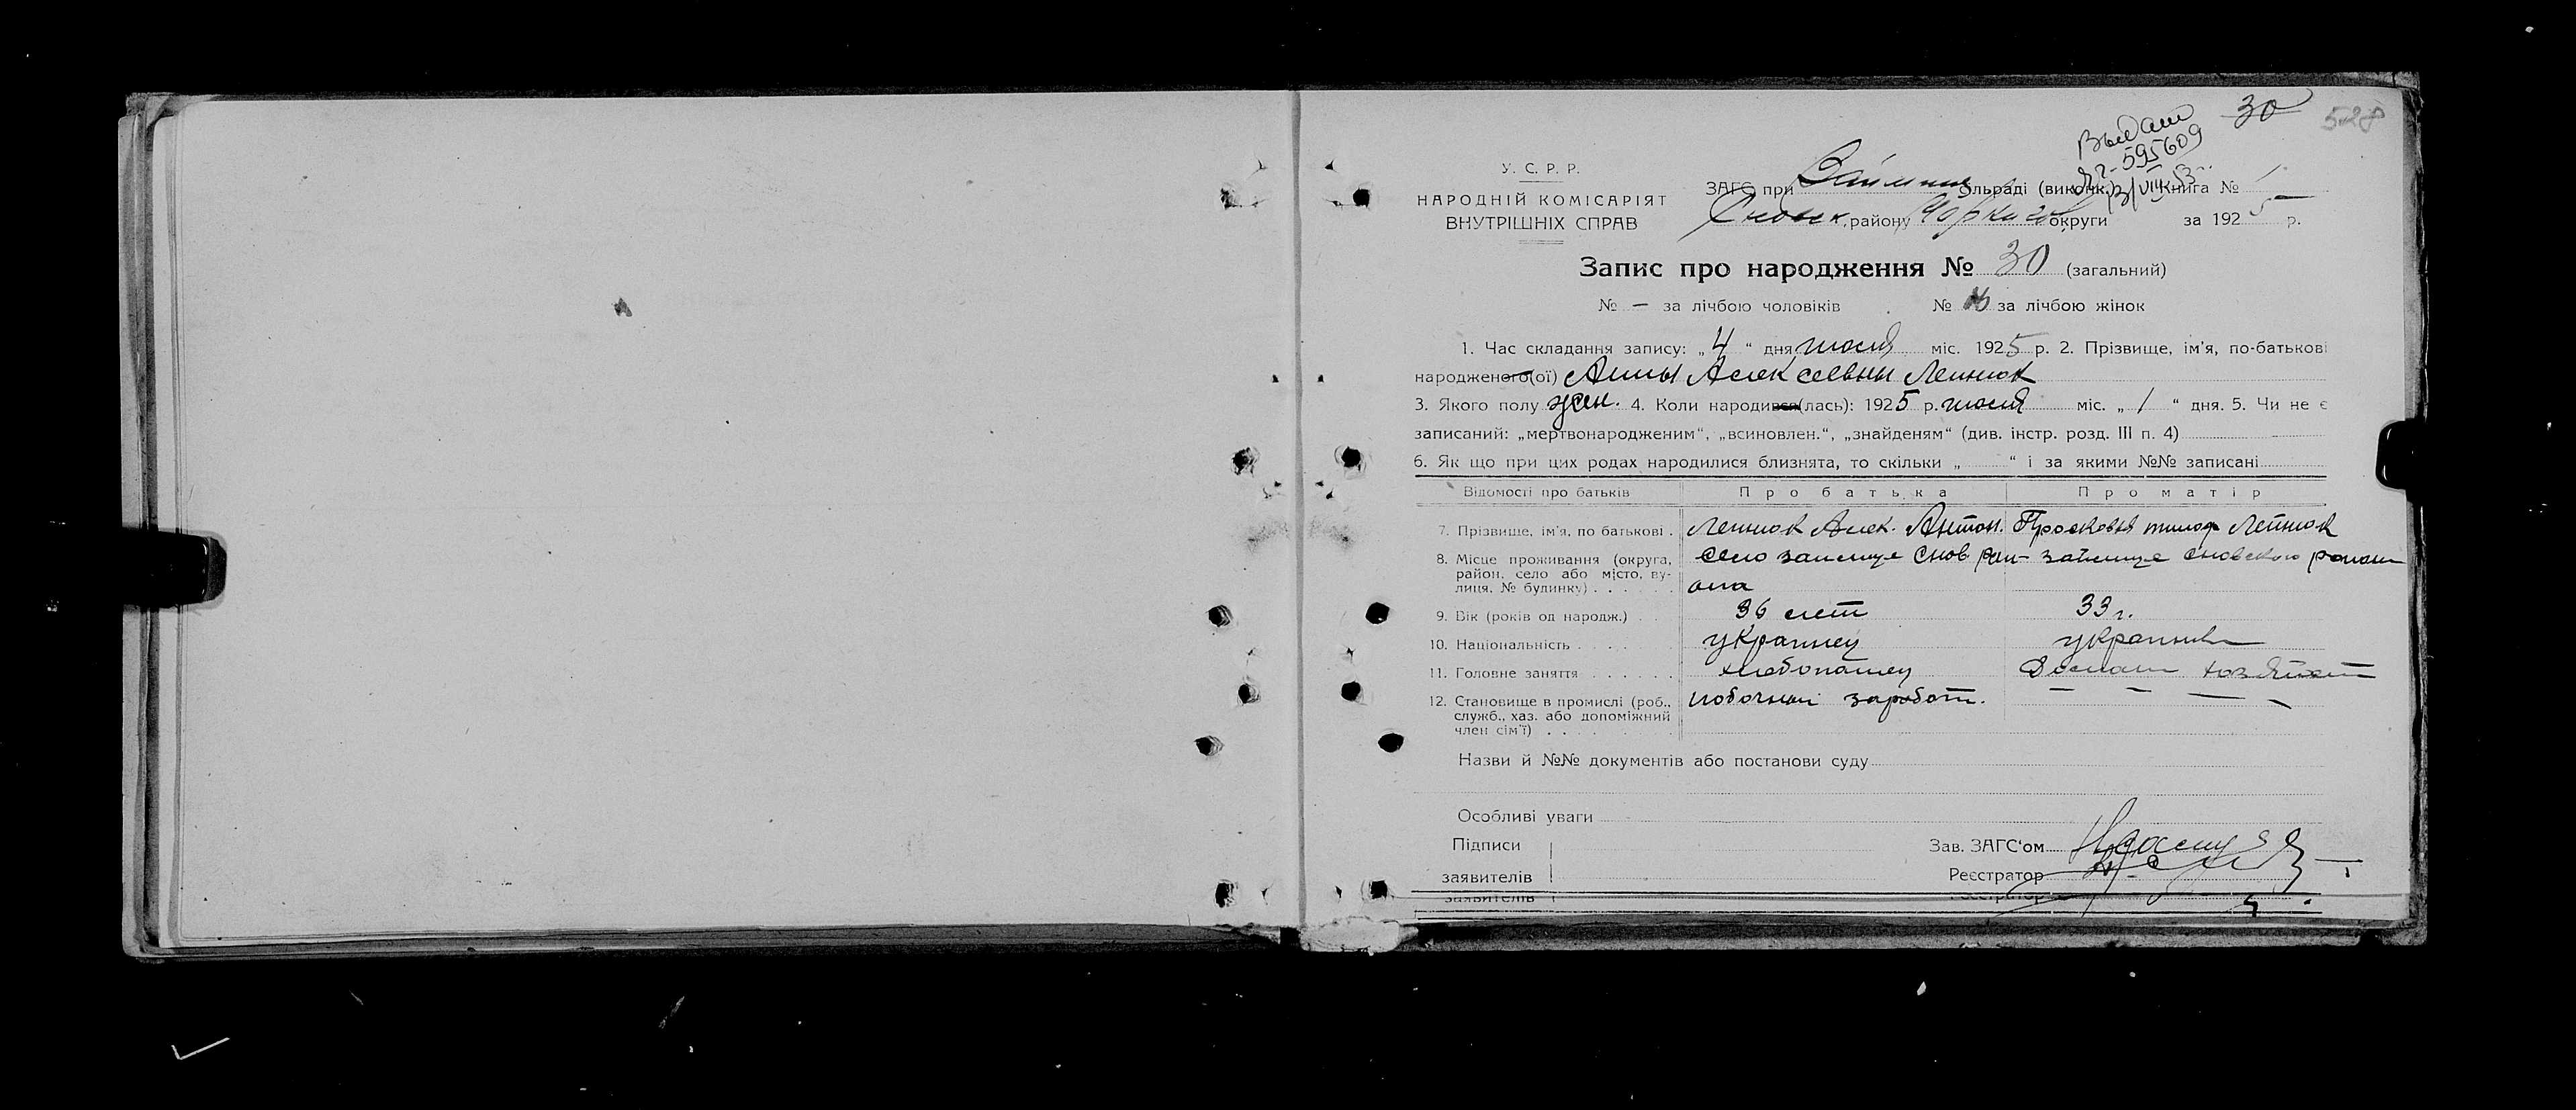 30
528
Выдан
ЯГ-595609
У. С. Р. Р.
НАРОДНІЙ КОМІСАРІЯТ
ВНУТРІШНІХ СПРАВ
ЗАГС при Займищ сільраді (виконк.) Книга № 1
Сновск. району Черниг округи за 1925 р.
Запис про народження № 30 (загальний)
№ — за лічбою чоловіків № 16 за лічбою жінок
1. Час складання запису: „4“ дня июля міс. 1925 р. 2. Прізвище, ім'я, по-батькові
народженого(ої) Анны Алексеевны Лейнюк
3. Якого полу жен. 4. Коли народився(лась): 1925 р. июля міс. „1“ дня. 5. Чи не є
записаний: „мертвонародженим“, „всиновлен.“, „знайденям“ (див. інстр. розд. III п. 4)
6. Як що при цих родах народилися близнята, то скільки „ “ і за якими №№ записані
Відомості про батьків Про батька Про матір
7. Прізвище, ім'я, по батькові . Лейнюк Алек. Антон. Просковья тимоф Лейнюк
8. Місце проживання (округа, село займище Снов рай- займище сновского района
район, село або місто, ву-
лиця, № будинку) . . . . . . она
9. Вік (років од народж.) . . 36 лет 33 г.
10. Національність . . . . украинец украинка
11. Головне заняття . . . . . . хлебопашец Домаш хозяйст
12. Становище в промислі (роб., побочной заработ. — — — —
служб., хаз. або допоміжний
член сім'ї) . . . .
Назви й №№ документів або постанови суду
Особливі уваги
Підписи Зав. ЗАГС'ом
заявителів Реєстратор
заявителів Реєстратор